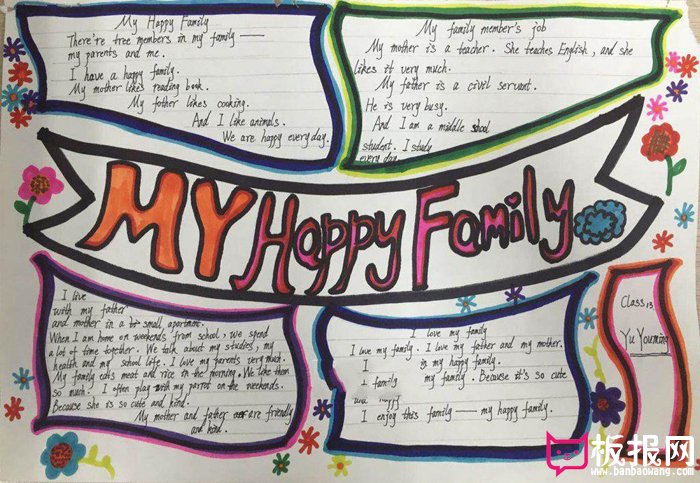 My Happy Family
There're tree members in my family —
my parents and me.
I have a happy family.
My mother likes reading book.
My fother likes cooking.
And I like animals.
We are happy every day.
My family member's job
My mother is a teacher. She teaches English, and she
likes it very much.
My father is a civil servant.
He is very busy.
And I am a middle school
student. I study
every day
MY Happy Family
I live
with my father
and mother in a small apartment.
When I am home on weekends from school, we spend
a lot of time together. We talk about my studies, my
health and my school life. I love my parents very much.
My family eats meat and rice in the morning. We like them
so much. I often play with my parrot on the weekends.
Because she is so cute and kind.
My mother and father are friendly
and kind.
I love my family
I love my family. I love my father and my mother.
I is my happy family.
I family my family. Because it's so cute
I enjoy this family — my happy family.
Class 13
Yu Youming
板报网
www.banbaowang.com